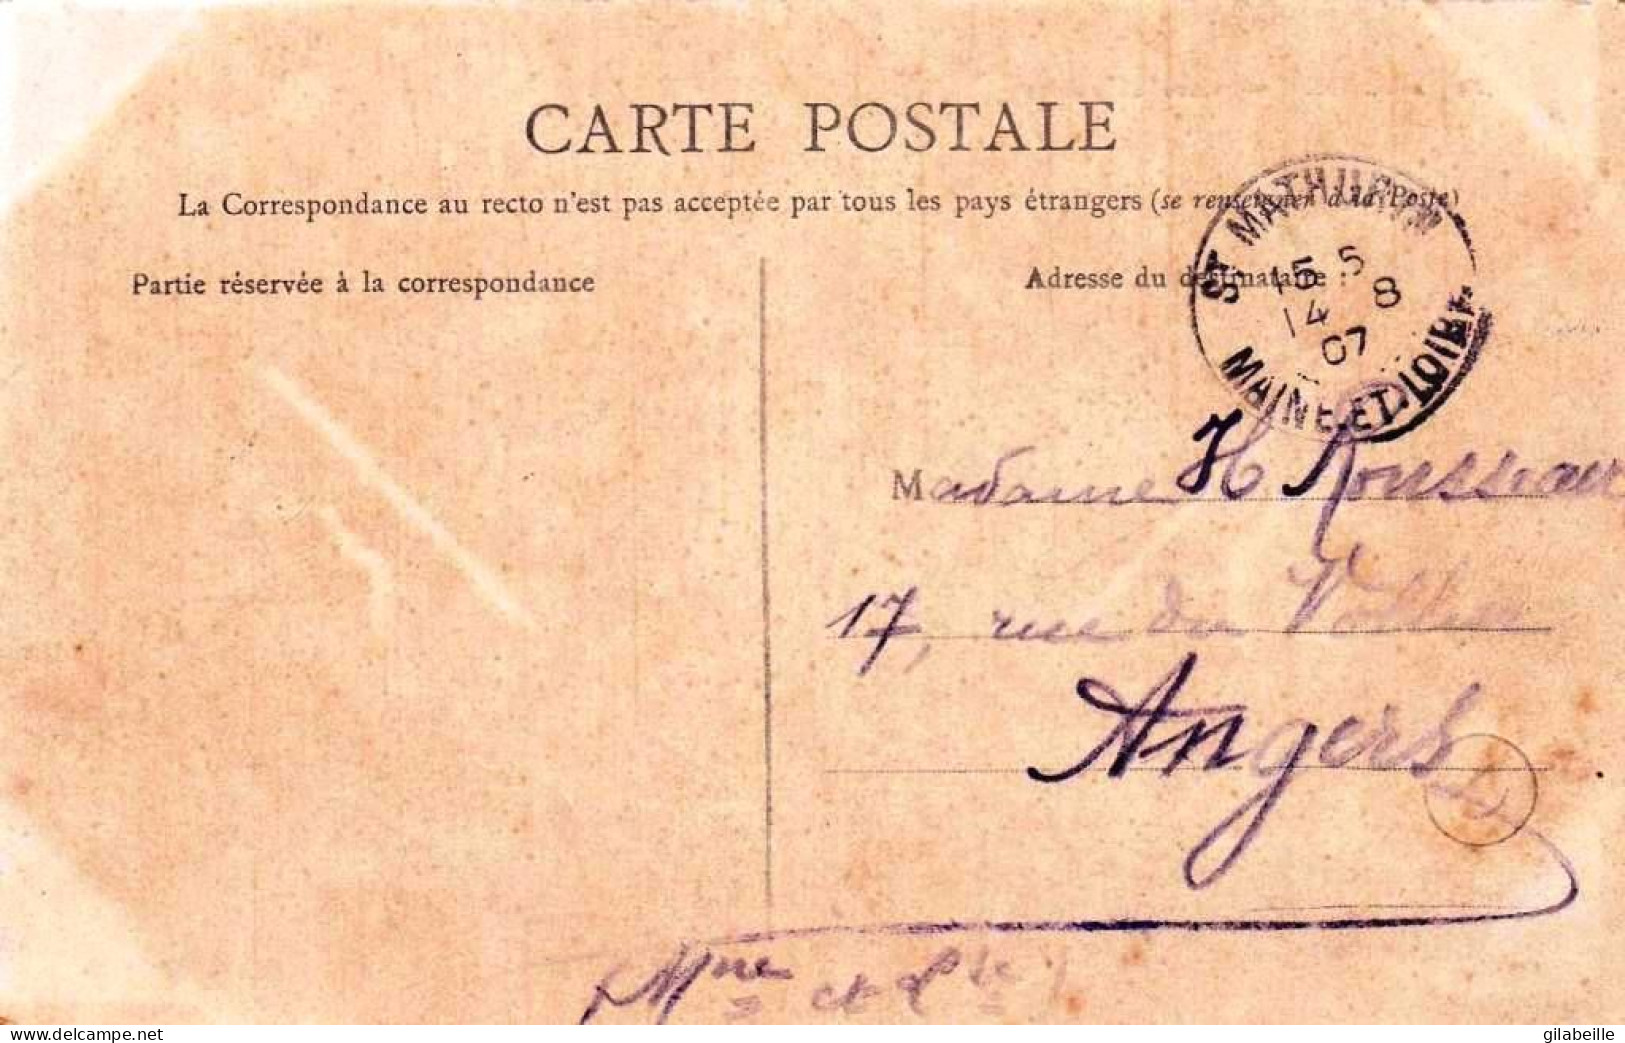 CARTE POSTALE
La Correspondance au recto n'est pas acceptée par tous les pays étrangers (se renseigner à la Poste)
Partie réservée à la correspondance
Adresse du destinataire :
ST MATHURIN
15 5
14 8
07
MAINE-ET-LOIRE
Madame H Rousseau
17, rue du
Angers
Mme et
delcampe.net
gilabeille